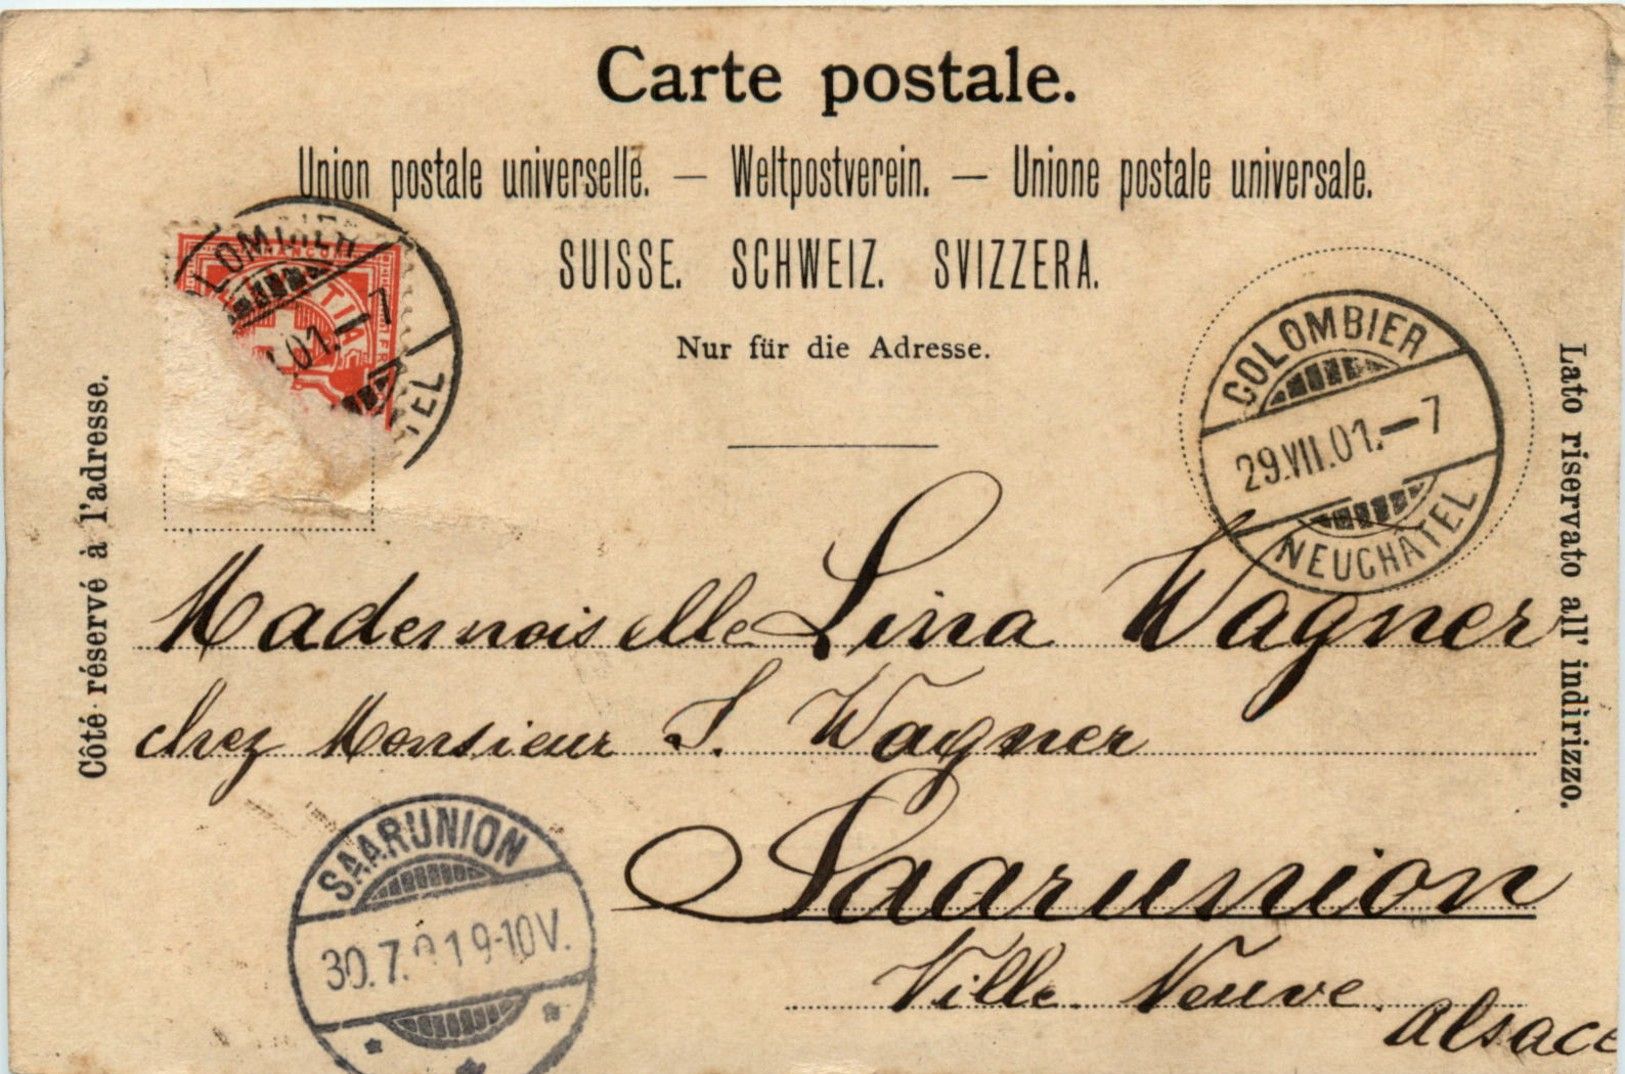 Carte postale.
Union postale universelle. — Weltpostverein. — Unione postale universale.
SUISSE. SCHWEIZ. SVIZZERA.
Nur für die Adresse.
Côté réservé à l'adresse.
Lato riservato all' indirizzo.
COLOMBIER
01.—7
TEL
COLOMBIER
29.VII.01.—7
NEUCHATEL
Mademoiselle Lina Wagner
chez Monsieur S. Wagner
Saarunion
Ville Neuve
Alsace
SAARUNION
30.7.01 9-10V.